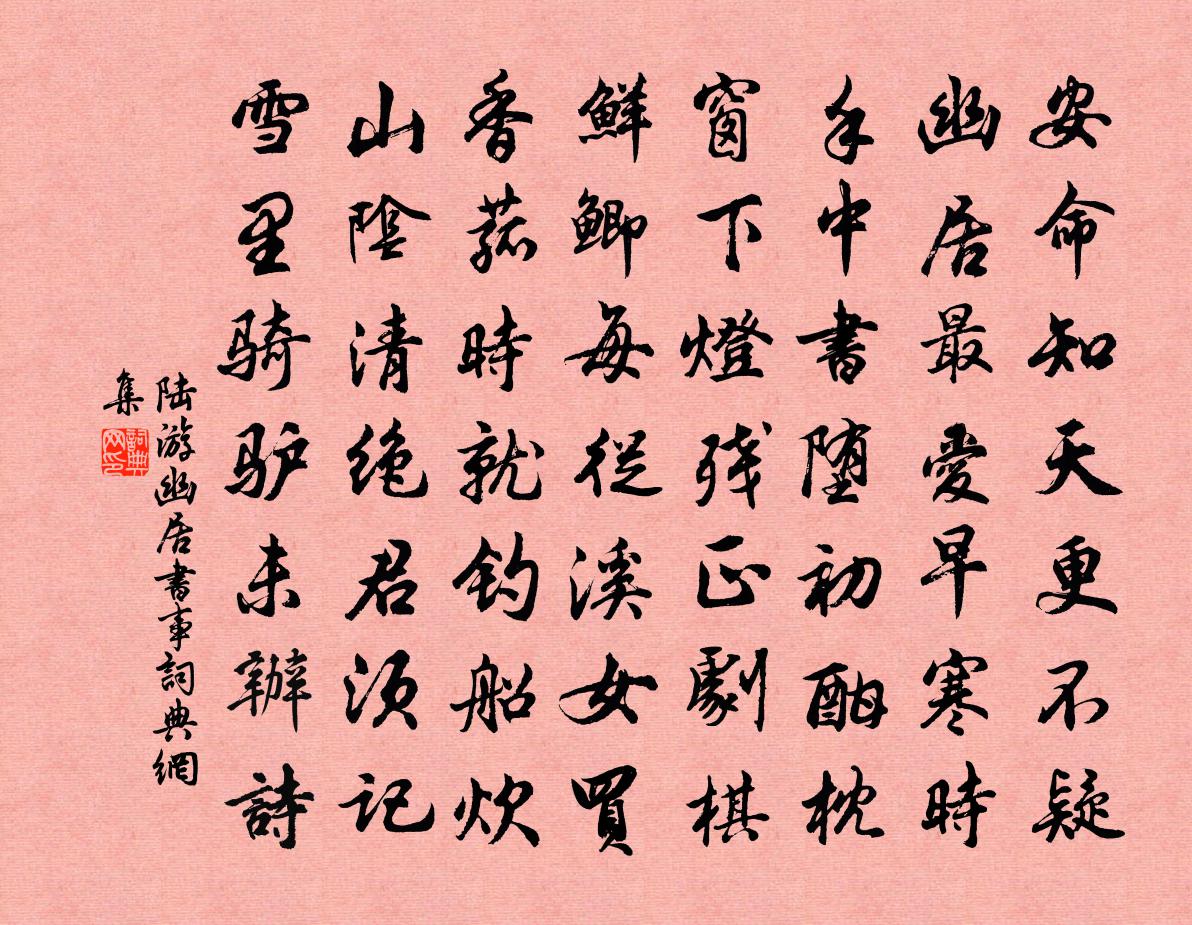 安命知天更不疑
幽居最愛早寒時
手中書堕初酣枕
窗下燈残正劇棋
鮮鯽每從溪女買
香菰時就钓船炊
山陰清绝君须记
雪里骑驴未辦詩
陆游幽居書事詞典網
集
詞典
网印